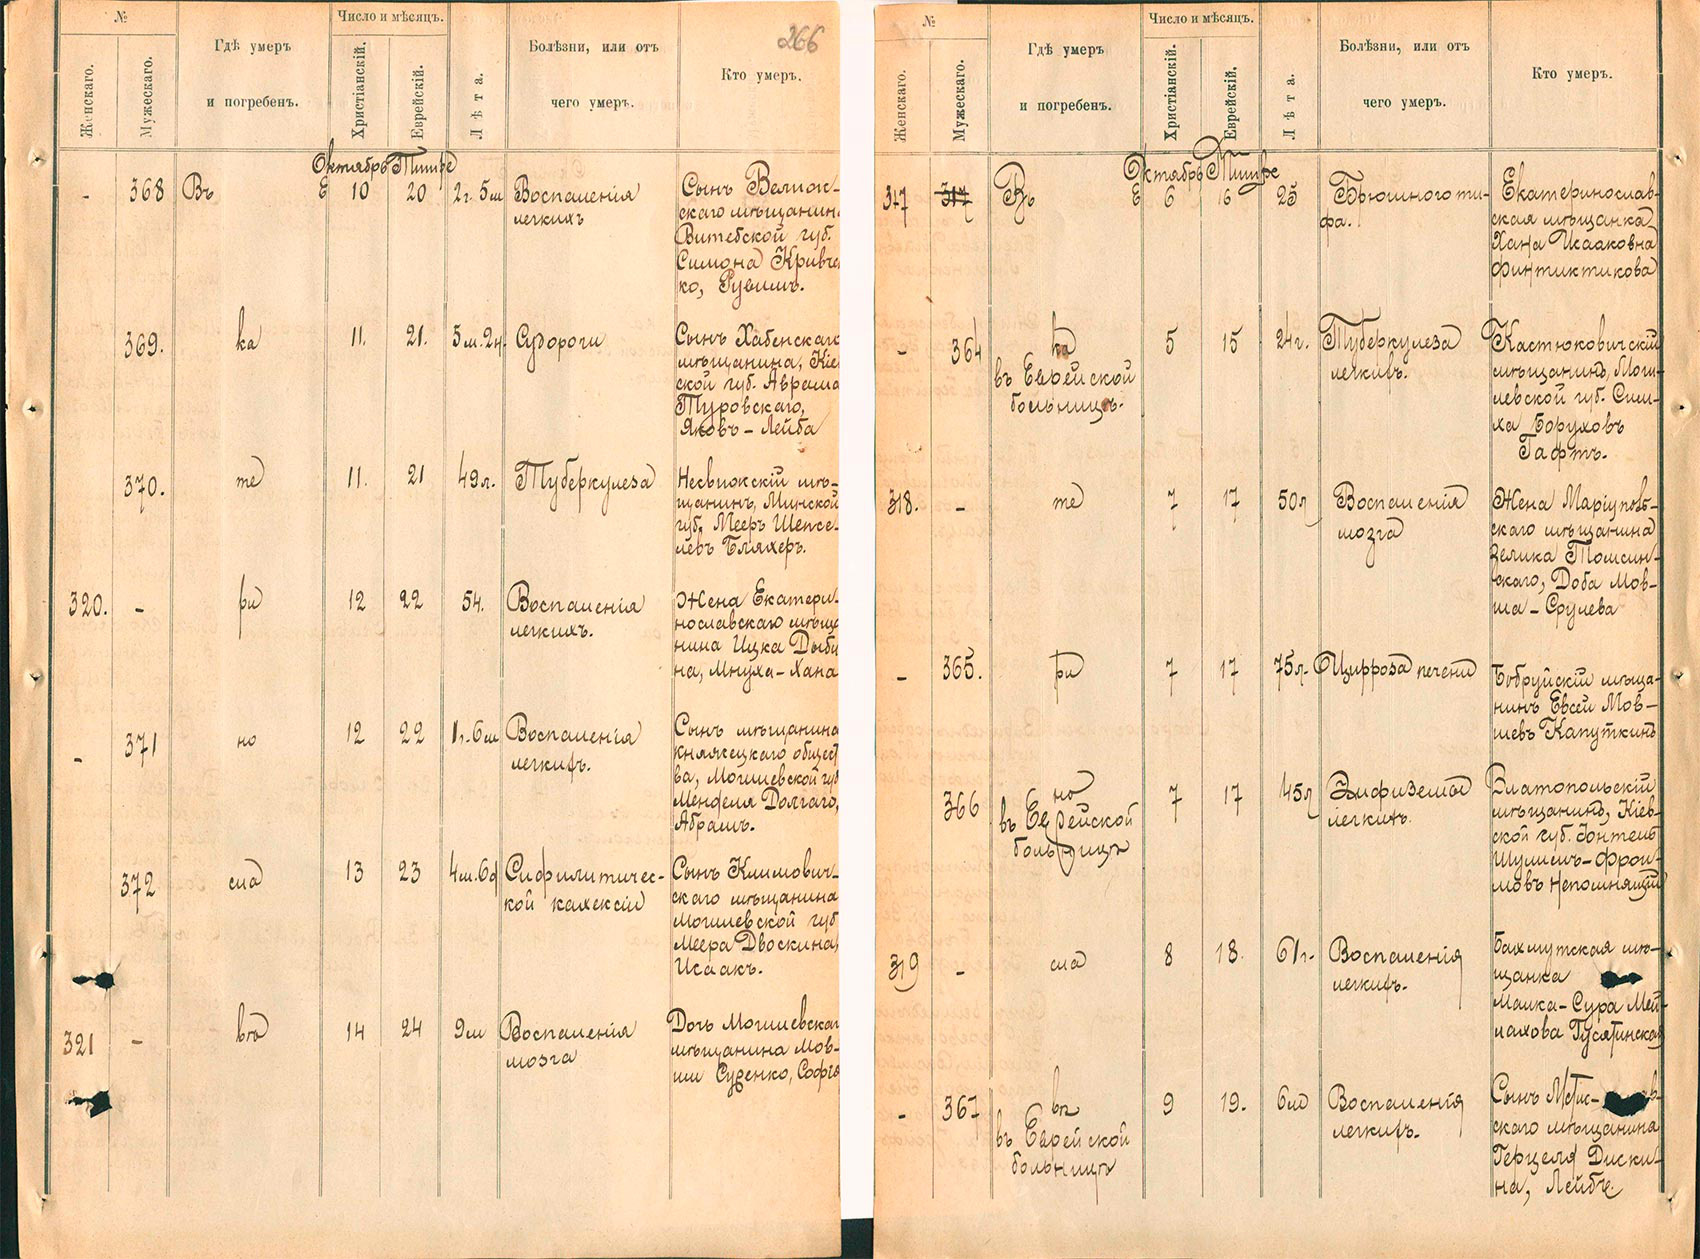 №
Число и мѣсяцъ.
266
Женскаго.
Мужескаго.
Гдѣ умеръ
и погребенъ.
Христіанскій.
Еврейскій.
Лѣта.
Болѣзни, или отъ
чего умеръ.
Кто умеръ.
Октябрь Тишре
- 368 Въ Е 10 20 2г. 5м Воспаленія
легкихъ
Сынъ Велиж-
скаго мѣщанина
Витебской губ.
Симона Кривчен
ко, Рувимъ.
369. ка 11. 21. 5м. 2н. Судороги
Сынъ Хабенскаго
мѣщанина, Кіев
ской губ. Аврама
Туровскаго,
Яковъ-Лейба
370. те 11. 21 49л. Туберкулеза
Несвижскій мѣ-
щанинъ, Минской
губ. Мееръ Шепсе-
левъ Бляхеръ.
320. - ри 12 22 54. Воспаленія
легкихъ.
Жена Екатери-
нославскаго мѣща
нина Ицка Дыби
на, Мнуха-Хана
- 371 но 12 22 1г. 6м Воспаленія
легкихъ.
Сынъ мѣщанина
Княжецкаго общест
ва, Могилевской губ
Менделя Долгаго,
Абрамъ.
372 сла 13 23 4м. 6д Сифилитичес-
кой кахексіи
Сынъ Климович-
скаго мѣщанина
Могилевской губ
Меера Двоскина,
Исаакъ.
321 - вѣ 14 24 9м Воспаленія
мозга
Дочь Могилевскаго
мѣщанина Мов-
ши Суденко, Софья
№
Число и мѣсяцъ.
Женскаго.
Мужескаго.
Гдѣ умеръ
и погребенъ.
Христіанскій.
Еврейскій.
Лѣта.
Болѣзни, или отъ
чего умеръ.
Кто умеръ.
Октябрь Тишре
317 317 Въ Е 6 16 25 Брюшного ти-
фа.
Екатеринослав-
ская мѣщанка
Хана Исааковна
Финтиктикова
- 364 ка 5 15 24г. Туберкулеза
въ Еврейской
больницѣ.
легкихъ.
Костюковичскій
мѣщанинъ, Моги-
левской губ. Сим-
ха Боруховъ
Гафтъ.
318. - те 7 17 50л Воспаленія
мозга
Жена Маріуполь-
скаго мѣщанина
Зелика Томсин-
скаго, Доба Мов-
ша-Срулева
- 365. ри 7 17 75л. Цирроза печени
Бобруйскій мѣща-
нинъ Евсей Мов-
шевъ Капуткинъ
366 но 7 17 45л Эмфиземы
въ Еврейской
больницѣ
легкихъ.
Златопольскій
мѣщанинъ, Кіев-
ской губ. Іонтель
Шулимъ-Фрои-
мовъ Непомнящій
319 - сла 8 18. 61г. Воспаленія
легкихъ.
Бахмутская мѣ-
щанка
Малка-Сура Мей-
лахова Гусятинская
- 367 вѣ 9 19. 6м Воспаленія
въ Еврейской
больницѣ
легкихъ.
Сынъ Мстис-
скаго мѣщанина
Герцеля Диски-
на, Лейбъ.